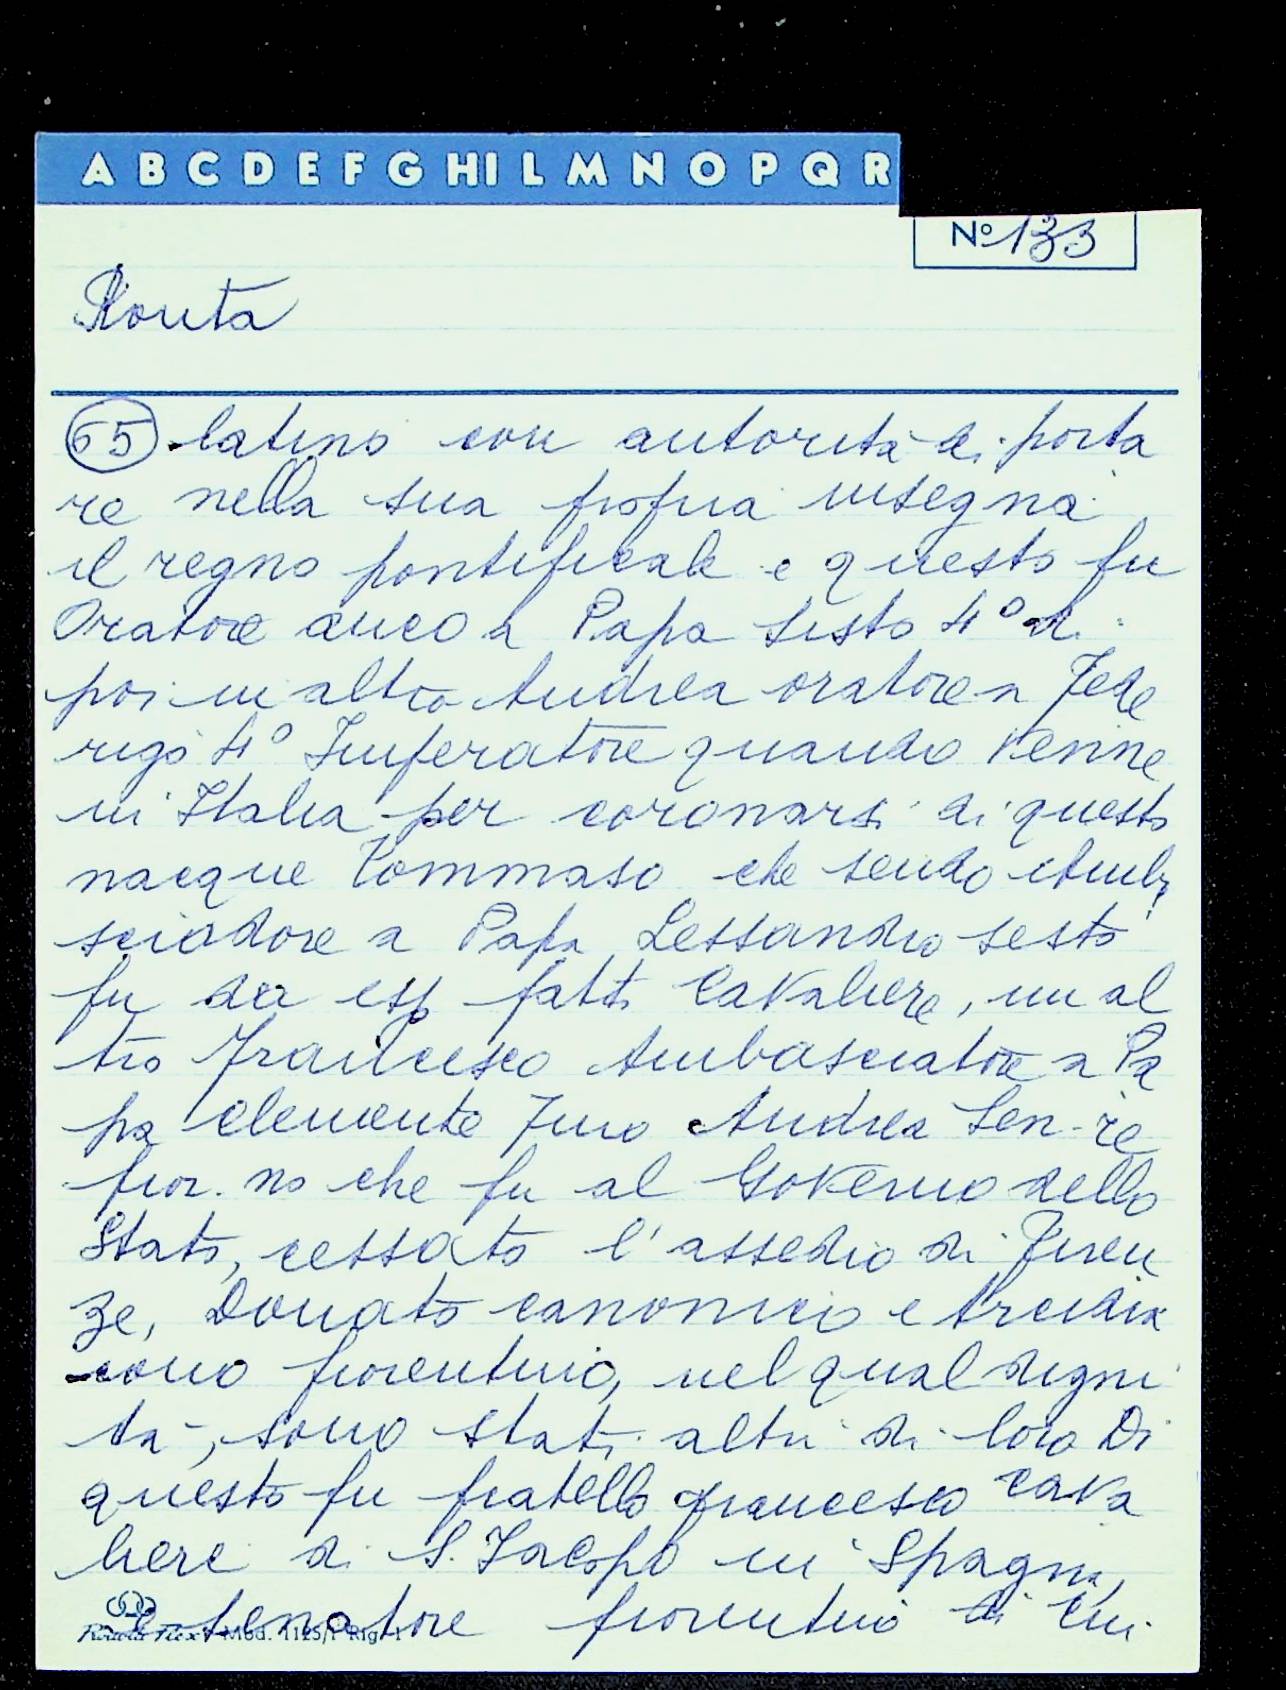 A B C D E F G HI L M N O P Q R
Nº 133
Ronta
65 latino con autorità di porta
re nella sua propria insegna
il regno pontificale e questo fu
Oratore anco a Papa Sisto 4º di
poi un altro Andrea oratore a Fede
rigo 4º Imperatore quando venne
in Italia per coronarsi di questo
nacque Tommaso che sendo Amba
sciadore a Papa Lessandro sesto
fu da esso fatto Cavaliere, un al
tro Francesco Ambasciatore a Pa
pa Clemente Andrea Sen-re
fior. no che fu al Governo dello
Stato, cessato l'assedio di Firen
ze, Donato canonico e Arcidia
cono fiorentino, nel qual digni
tà, sono stati altri di loro Di
questo fu fratello francesco cava
liere di S. Jacopo in Spagna,
e senatore fiorentino di cui
Mod. 1125/1 Rig. 1